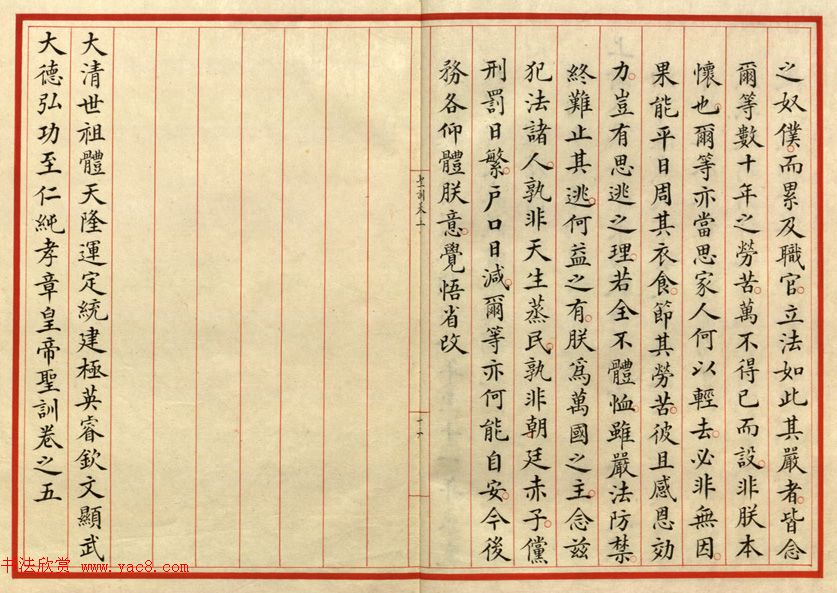 之奴僕而累及職官立法如此其嚴者皆念
爾等數十年之勞苦萬不得已而設非朕本
懷也爾等亦當思家人何以輕去必非無因
果能平日周其衣食節其勞苦彼且感恩効
力豈有思逃之理若全不體恤雖嚴法防禁
終難止其逃何益之有朕爲萬國之主念玆
犯法諸人孰非天生蒸民孰非朝廷赤子儻
刑罰日繁戶口日減爾等亦何能自安今後
務各仰體朕意覺悟省改
大清世祖體天隆運定統建極英睿欽文顯武
大德弘功至仁純孝章皇帝聖訓卷之五
书法欣赏 www.yac8.com